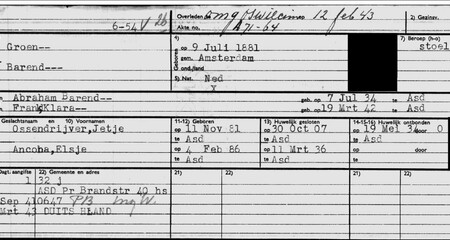 6-54 V 26 Overleden 12 feb 43 2) Gezinsv.
Akte no. A71-64
Groen-- op 9 Juli 1881 7) Beroep (h=hoofd) stoel
Barend--- te Amsterdam
ond./land
5) Nat. Ned
Y
Abraham Barend-- geb. op 7 Jul 34 te Asd
Frank Klara-- geb. op 19 Mrt 42 te Asd
Geslachtsnaam en 10) Voornamen 11-12) Geboren 13) Huwelijk gesloten 14-15-16) Huwelijk ontbonden
Ossendrijver,Jetje op 11 Nov 81 op 30 Oct 07 op 19 Mei 34 door O
te Asd te Asd te Asd
Ancona,Elsje op 4 Feb 86 op 11 Mrt 36 op door
te Asd te Asd te
Dagt. aangifte 22) Gemeente en adres 21) 22) 21) 22)
1 32 j
ASD Pr Brandstr 40 hs
Sep 41 0647 PB
Mrt 43 DUITSCHLAND